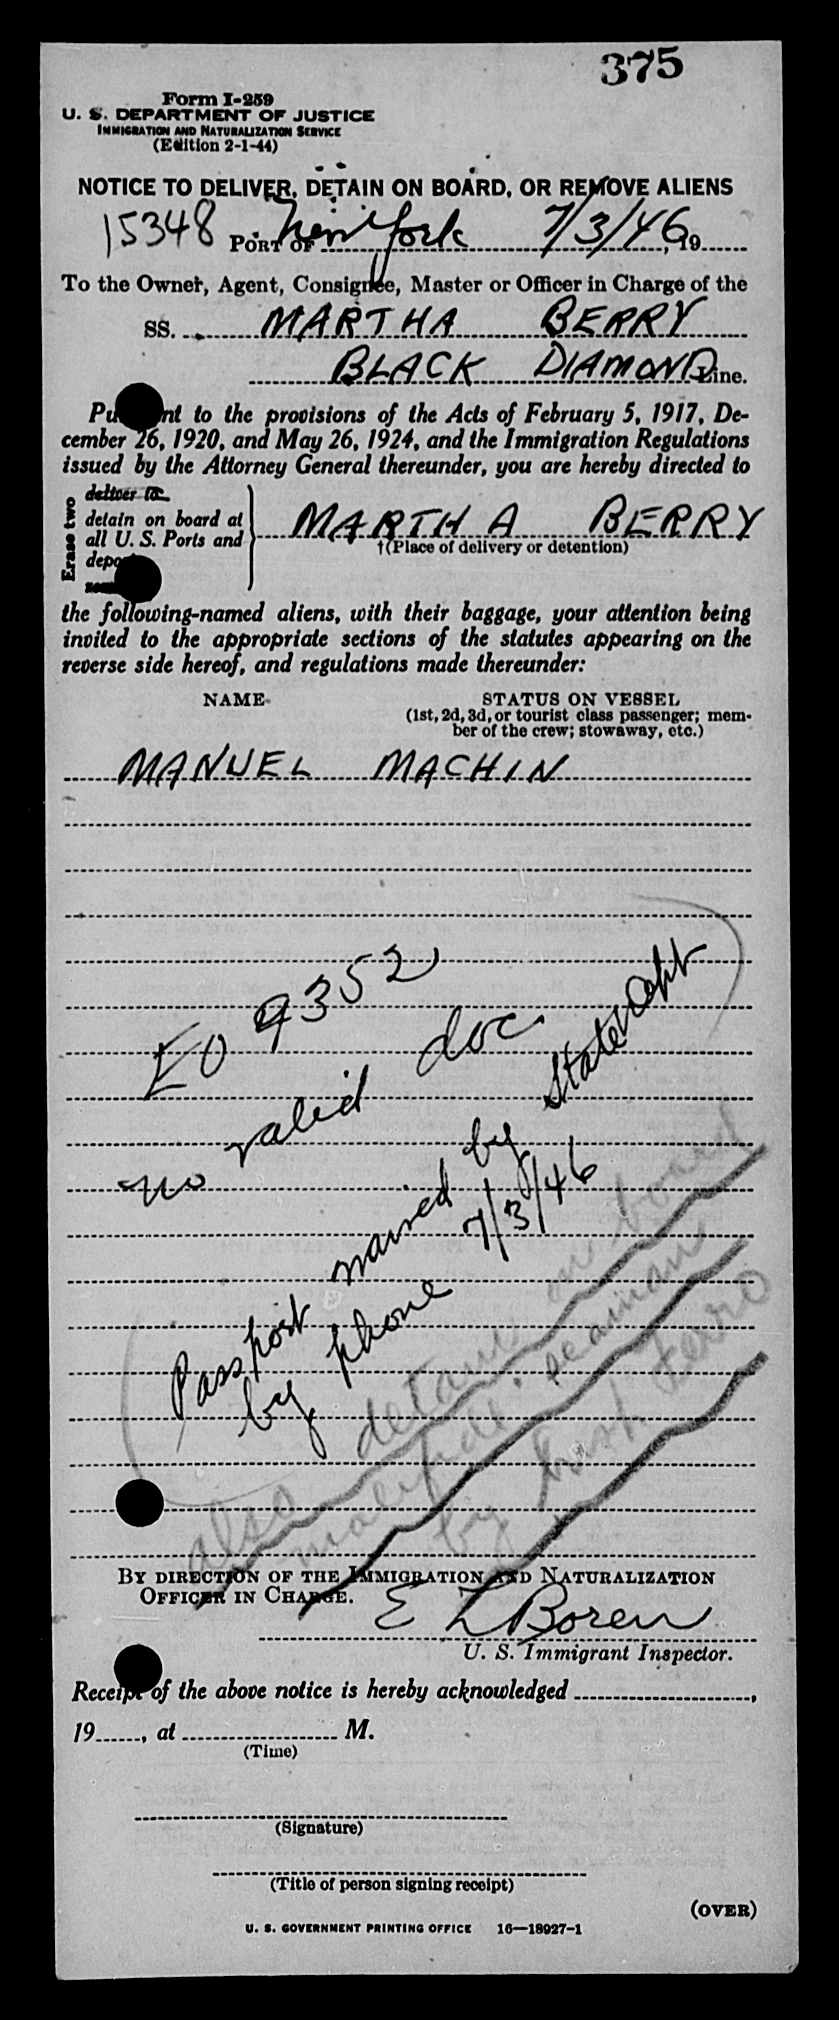 375
Form I-259
U. S. DEPARTMENT OF JUSTICE
IMMIGRATION AND NATURALIZATION SERVICE
(Edition 2-1-44)
NOTICE TO DELIVER, DETAIN ON BOARD, OR REMOVE ALIENS
15348 PORT OF New York 7/3/46, 19
To the Owner, Agent, Consignee, Master or Officer in Charge of the
SS. MARTHA BERRY
BLACK DIAMOND Line.
Pu nt to the provisions of the Acts of February 5, 1917, De-
cember 26, 1920, and May 26, 1924, and the Immigration Regulations
issued by the Attorney General thereunder, you are hereby directed to
Erase two
deliver to
detain on board at
all U. S. Ports and
depo
MARTHA BERRY
†(Place of delivery or detention)
the following-named aliens, with their baggage, your attention being
invited to the appropriate sections of the statutes appearing on the
reverse side hereof, and regulations made thereunder:
NAME STATUS ON VESSEL
(1st, 2d, 3d, or tourist class passenger; mem-
ber of the crew; stowaway, etc.)
MANUEL MACHIN
EO 9352
no valid doc.
Passport waived by State Dept
by phone 7/3/46
also detain on board
mala fide seaman
by
BY DIRECTION OF THE IMMIGRATION AND NATURALIZATION
OFFICER IN CHARGE.
E L Boren
U. S. Immigrant Inspector.
Receipt of the above notice is hereby acknowledged ,
19 , at M.
(Time)
(Signature)
(Title of person signing receipt)
(OVER)
U. S. GOVERNMENT PRINTING OFFICE 16—18927-1